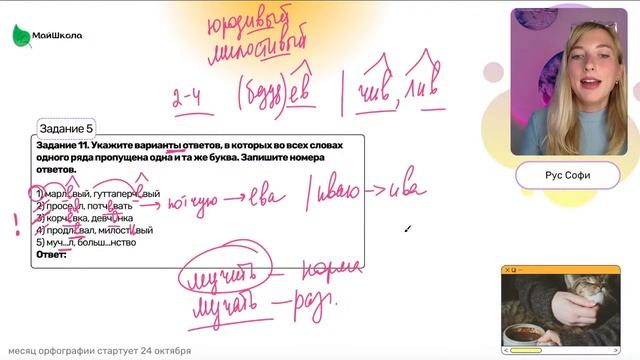 МайШкола
юродивый
милостивый
2-4 (будд) ев | чив, лив
Задание 5
Задание 11. Укажите варианты ответов, в которых во всех словах
одного ряда пропущена одна и та же буква. Запишите номера
ответов.
1) марлевый, гуттаперчевый
2) просе...л, потчевать → потчую → ева | иваю → ива
3) корчёвка, девчонка
! 4) продлевал, милостивый
5) муч...л, больш...нство
Ответ:
мучить — норма
мучать — разг.
Рус Софи
месяц орфографии стартует 24 октября